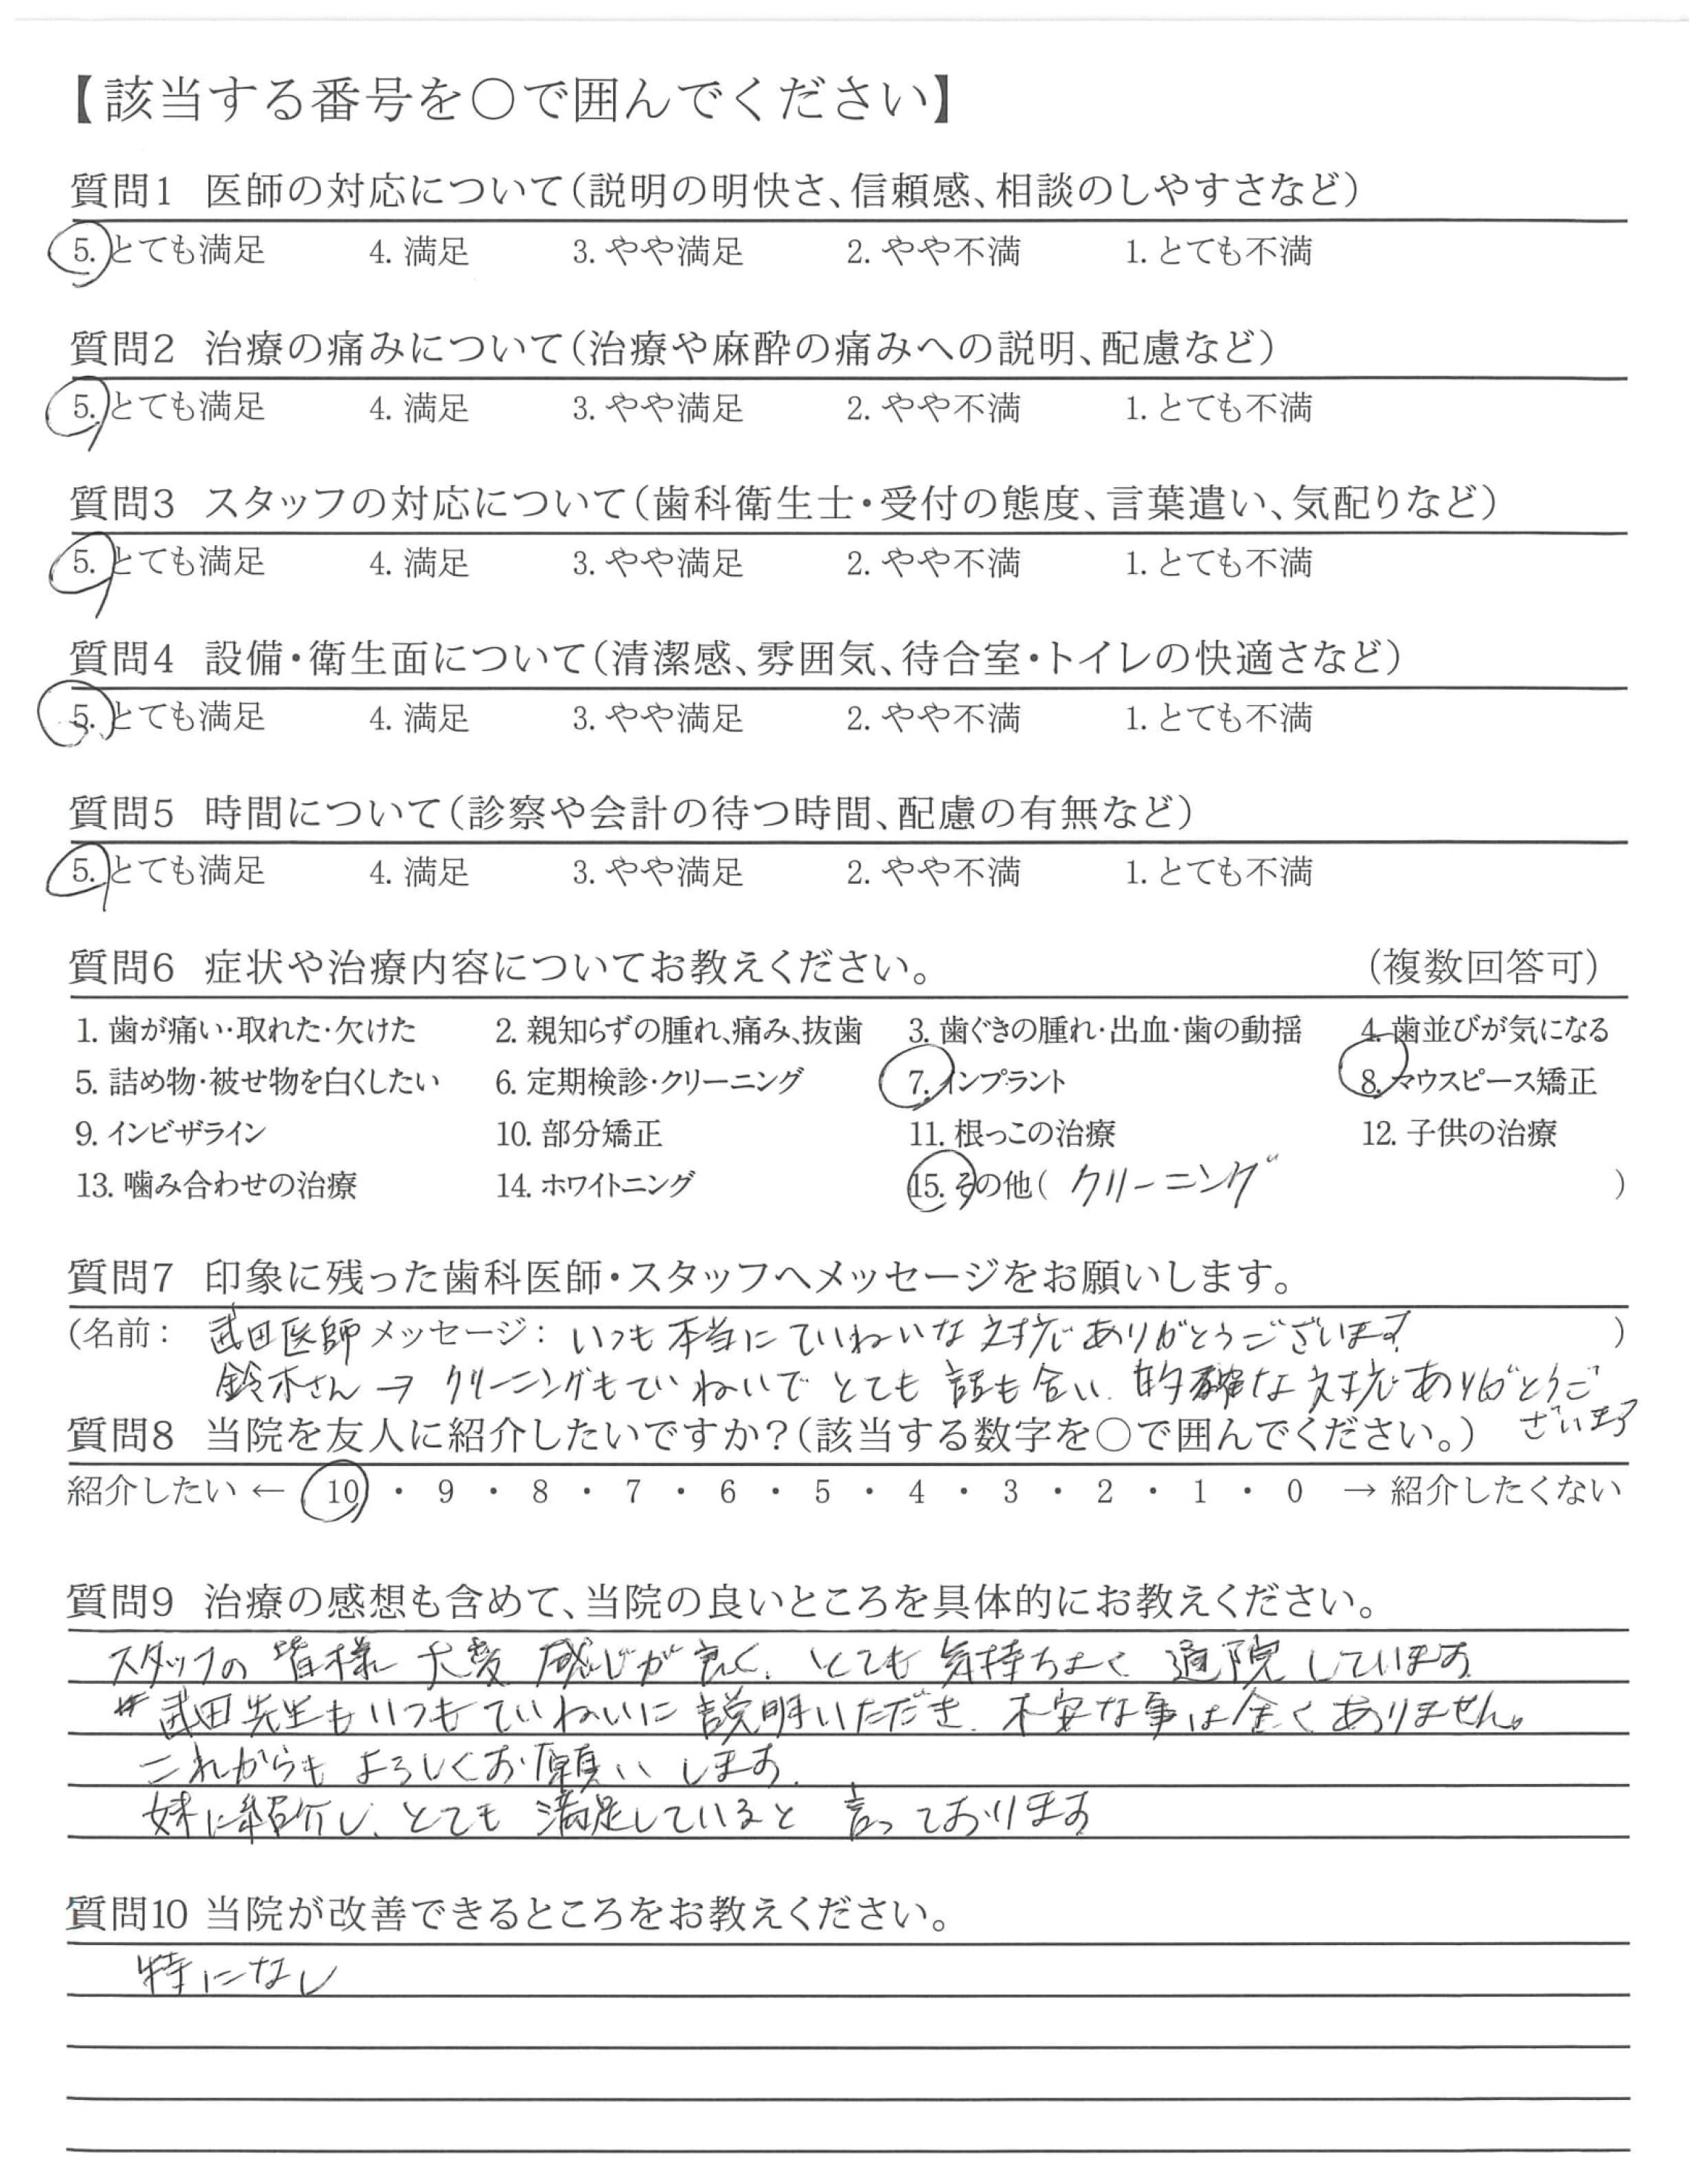 【該当する番号を○で囲んでください】
質問1 医師の対応について(説明の明快さ、信頼感、相談のしやすさなど)
5. とても満足 4. 満足 3. やや満足 2. やや不満 1. とても不満
質問2 治療の痛みについて(治療や麻酔の痛みへの説明、配慮など)
5. とても満足 4. 満足 3. やや満足 2. やや不満 1. とても不満
質問3 スタッフの対応について(歯科衛生士・受付の態度、言葉遣い、気配りなど)
5. とても満足 4. 満足 3. やや満足 2. やや不満 1. とても不満
質問4 設備・衛生面について(清潔感、雰囲気、待合室・トイレの快適さなど)
5. とても満足 4. 満足 3. やや満足 2. やや不満 1. とても不満
質問5 時間について(診察や会計の待つ時間、配慮の有無など)
5. とても満足 4. 満足 3. やや満足 2. やや不満 1. とても不満
質問6 症状や治療内容についてお教えください。 (複数回答可)
1. 歯が痛い・取れた・欠けた 2. 親知らずの腫れ、痛み、抜歯 3. 歯ぐきの腫れ・出血・歯の動揺 4. 歯並びが気になる
5. 詰め物・被せ物を白くしたい 6. 定期検診・クリーニング 7. インプラント 8. マウスピース矯正
9. インビザライン 10. 部分矯正 11. 根っこの治療 12. 子供の治療
13. 噛み合わせの治療 14. ホワイトニング 15. その他( クリーニング )
質問7 印象に残った歯科医師・スタッフへメッセージをお願いします。
(名前: 武田医師 メッセージ: いつも本当にていねいな対応ありがとうございます )
鈴木さん → クリーニングもていねいで とても 話も合い、的確な対応ありがとうご
ざいます
質問8 当院を友人に紹介したいですか?(該当する数字を○で囲んでください。)
紹介したい ← 10 ・ 9 ・ 8 ・ 7 ・ 6 ・ 5 ・ 4 ・ 3 ・ 2 ・ 1 ・ 0 → 紹介したくない
質問9 治療の感想も含めて、当院の良いところを具体的にお教えください。
スタッフの皆様 大変 感じが良く、とても 気持ちよく 通院しています
武田先生もいつもていねいに説明いただき、不安な事は全くありません。
これからも よろしくお願いします。
妹に紹介し、とても 満足していると 言っております
質問10 当院が改善できるところをお教えください。
特になし